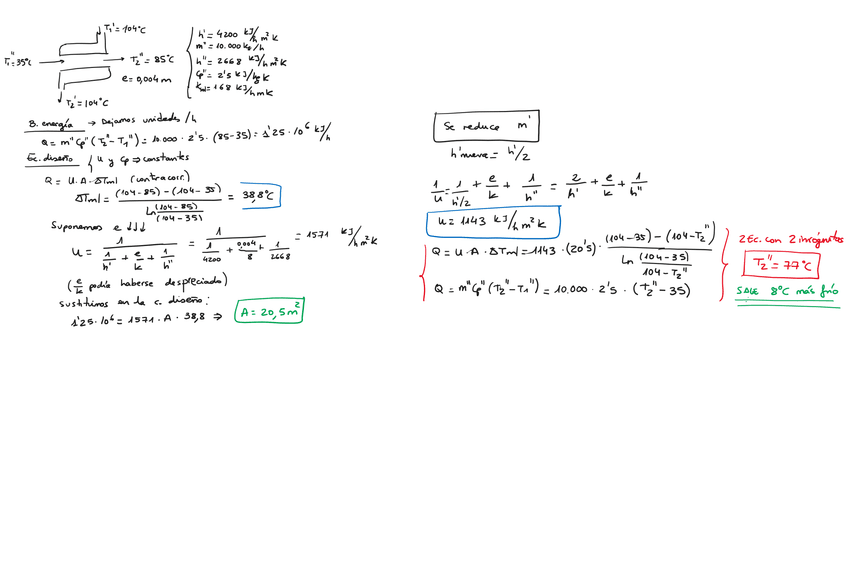 T₁' = 104°C
T₁'' = 35°C
T₂'' = 85°C
e = 0,004 m
T₂' = 104°C
h' = 4200 KJ/h m² K
m'' = 10.000 kg/h
h'' = 2668 KJ/h m² K
Cp'' = 2'5 KJ/kg K
K = 168 KJ/h m K
B. energía → Dejamos unidades /h
Q = m'' Cp'' (T₂'' - T₁'') = 10.000 · 2'5 · (85-35) = 1'25 · 10⁶ KJ/h
Ec. diseño { U y Cp ⇒ constantes
Q = U · A · ΔTml (contracorr.)
ΔTml = ((104-85) - (104-35)) / (Ln (104-85)/(104-35)) = 38,8°C
Suponemos e ↓↓↓
U = 1 / (1/h' + e/k + 1/h'') = 1 / (1/4200 + 0,004/8 + 1/2668) = 1571 KJ/h m² K
(e/k podía haberse despreciado)
Sustituimos en la c. diseño:
1'25 · 10⁶ = 1571 · A · 38,8 ⇒ A = 20,5 m²
Se reduce m'
h' nueva = h'/2
1/U = 1/(h'/2) + e/k + 1/h'' = 2/h' + e/k + 1/h''
U = 1143 KJ/h m² K
Q = U · A · ΔTml = 1143 · (20'5) · ((104-35) - (104-T₂'')) / (Ln (104-35)/(104-T₂''))
Q = m'' Cp'' (T₂'' - T₁'') = 10.000 · 2'5 · (T₂'' - 35)
2 Ec. con 2 incógnitas
T₂'' = 77°C
SALE 8°C más frío